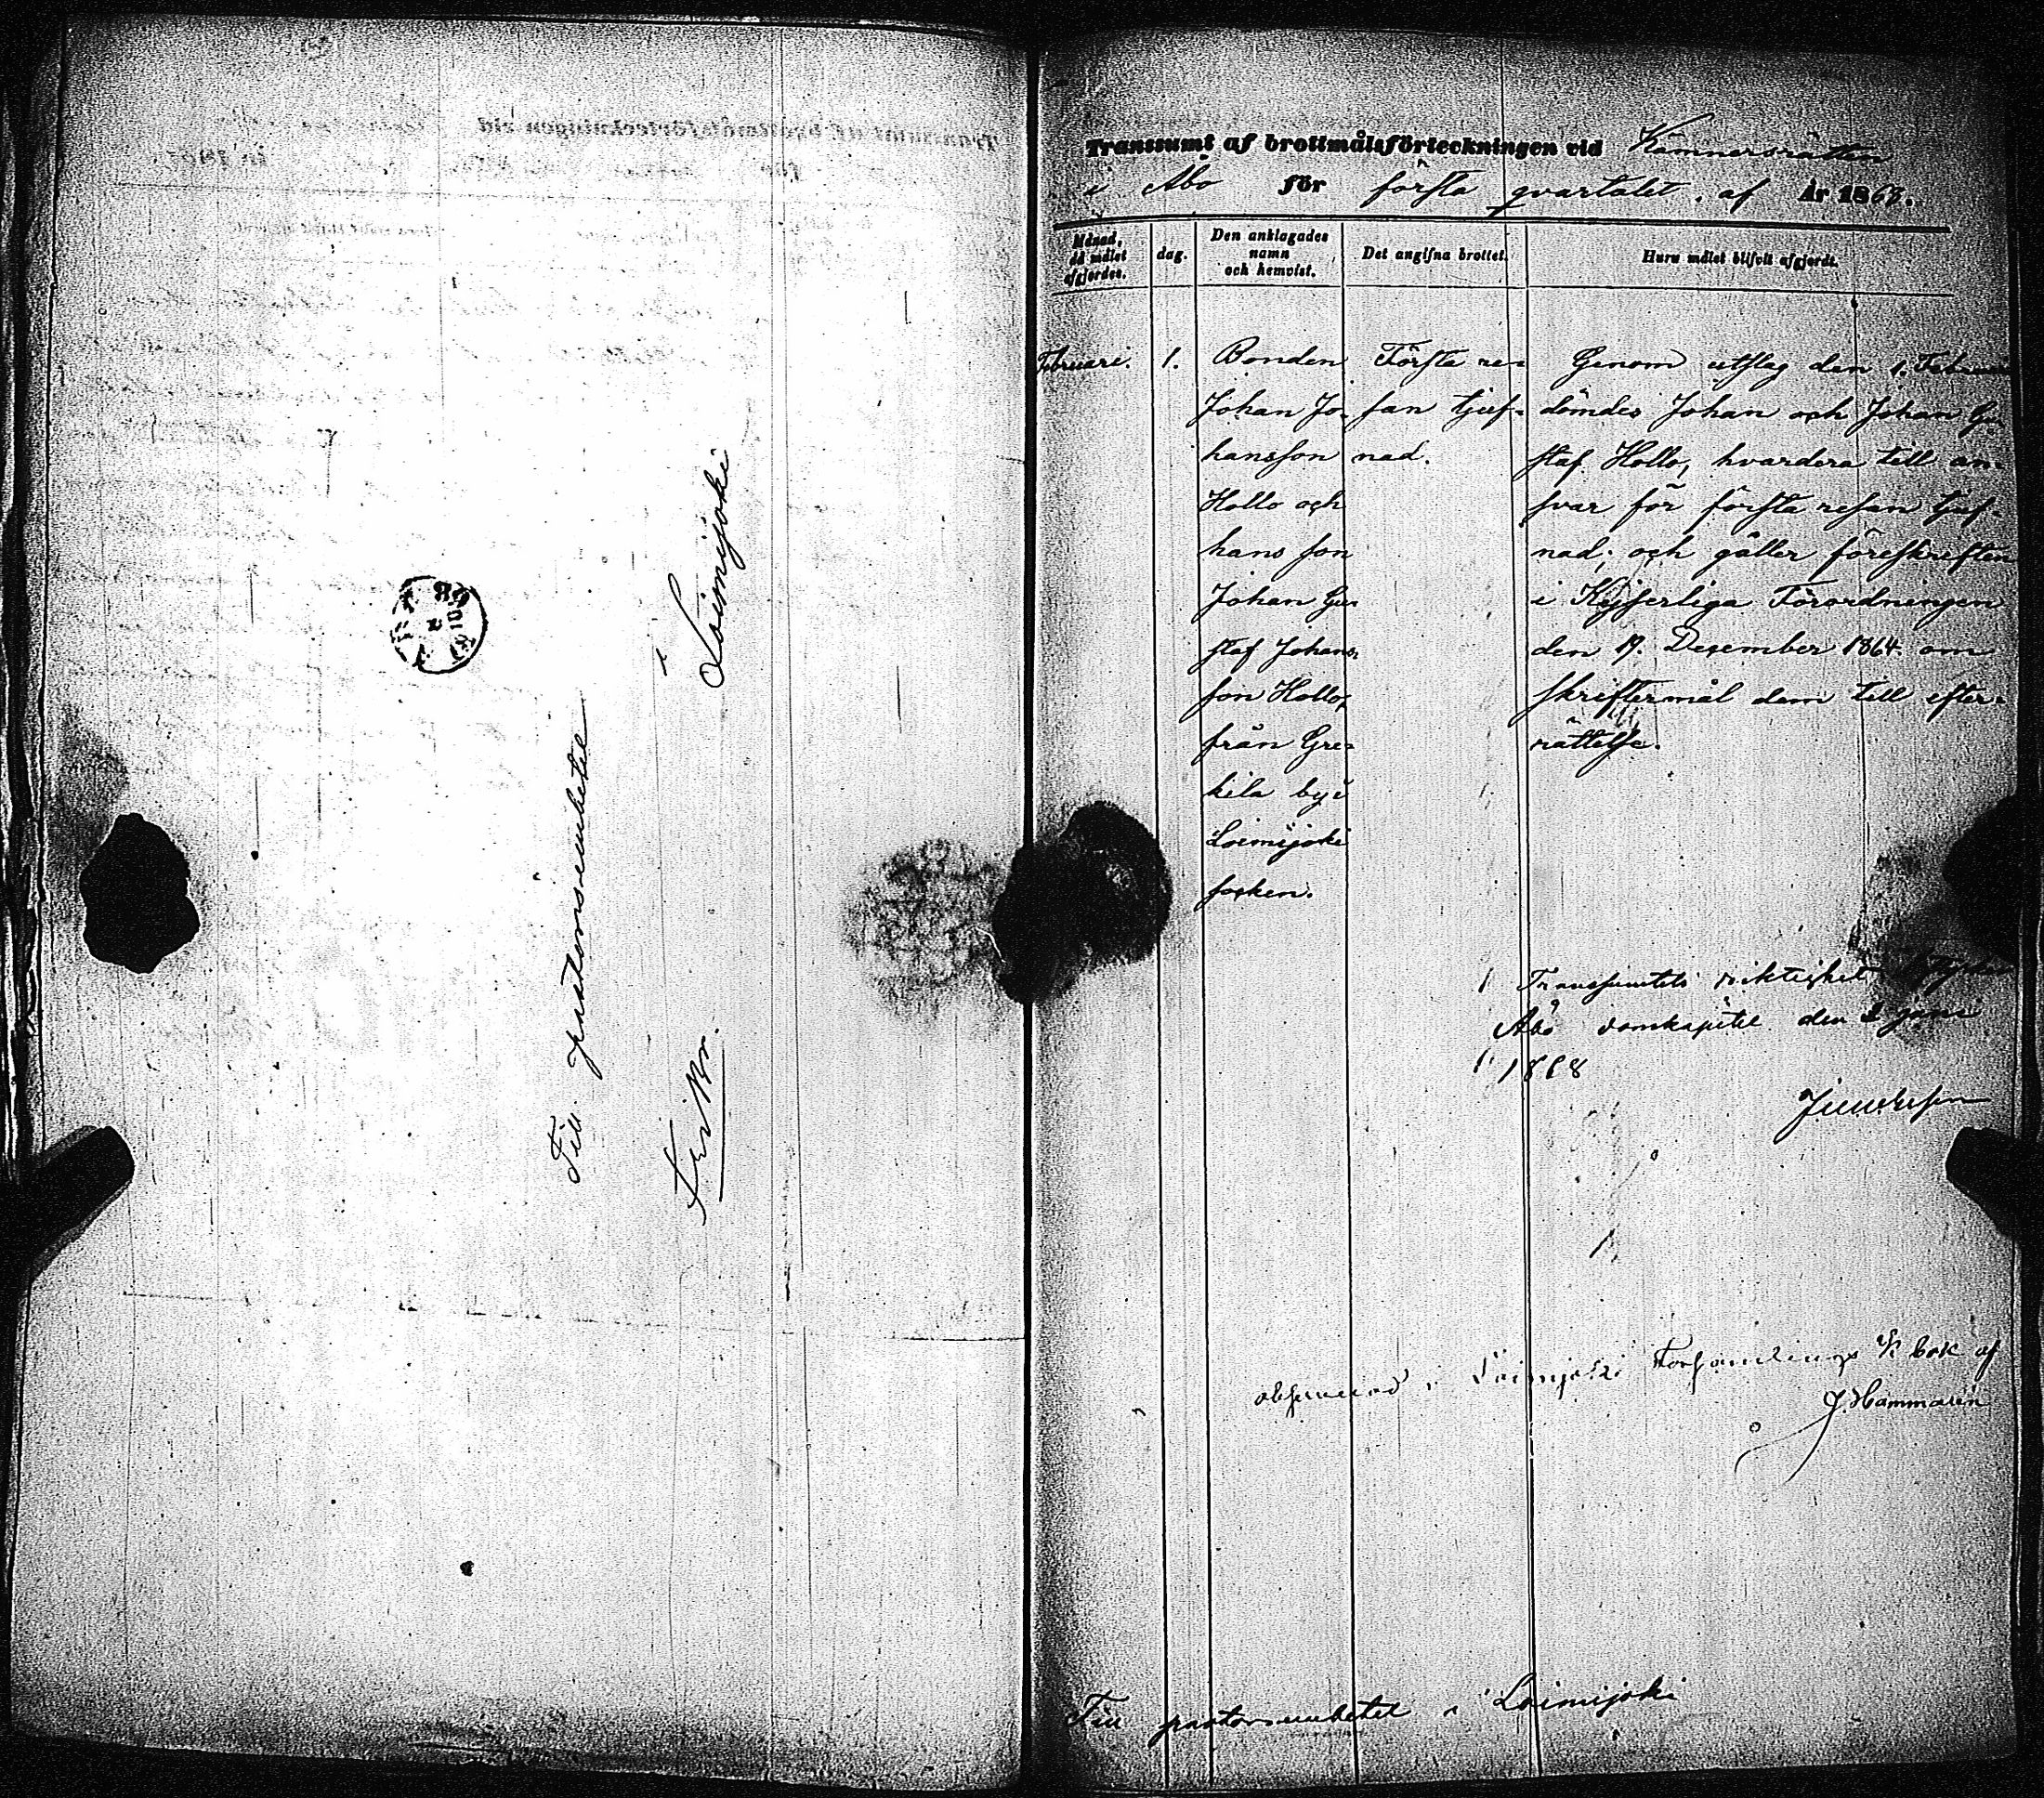 Till pastorsembetet
i Loimijoki
Transsumt af brottmålsförteckningen vid Kämnersrätten
i Åbo för första qvartalet af År 1868.
Månad, då målet afgjordes.
dag.
Den anklagades namn och hemvist.
Det angifna brottet.
Huru målet blifvit afgjordt.
Februari.
1.
Bonden
Johan Jo-
hansson
Hollo och
hans son
Johan Gu-
staf Johans-
son Hollo,
från Gre-
kila by i
Loimijoki
socken.
Första re-
san tjuf-
nad.
Genom utslag den 1. Februari
dömdes Johan och Johan Gu-
staf Hollo, hvardera till an-
svar för första resan tjuf-
nad; och gäller föreskriften
i Kejserliga Förordningen
den 19. December 1864 om
skriftermål dem till efter-
rättelse.
Transsumtets riktighet
Åbo domkapitel den juni
1868
observerad i Loimijoki Församlings bok af
J. Hammarén
Till pastorsembetet i Loimijoki